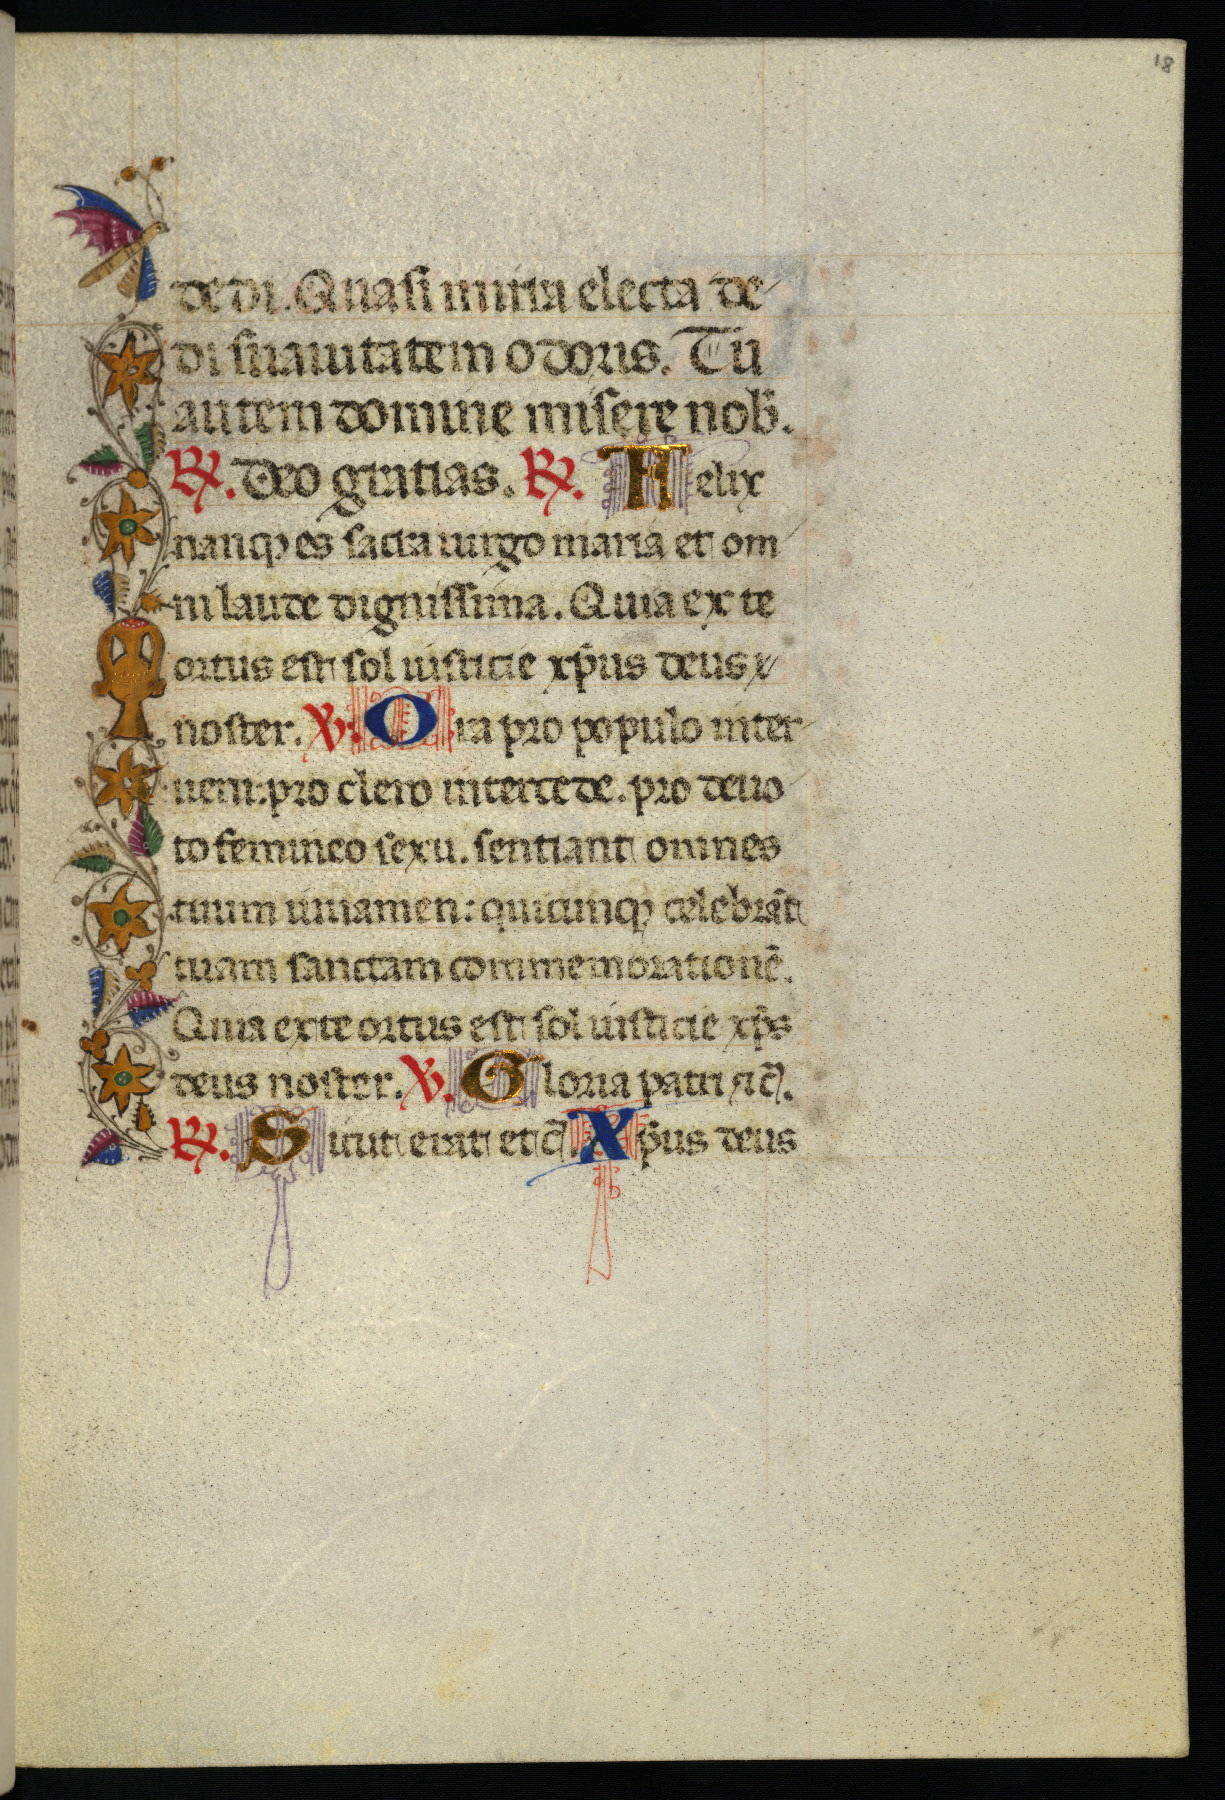 18
dedi. Quasi mirra electa de
di suauitatem odoris. Tu
autem domine misere nob̄.
℟. Deo gratias. ℟. Felix
nanqꝫ es sacra uirgo maria et om
ni laude dignissima. Quia ex te
ortus est sol iusticie xp̄us deus
noster. ℣. Ora pro populo inter
ueni: pro clero intercede. pro deuo
to femineo sexu. sentiant omnes
tuum iuuamen: quicunqꝫ celebrāt
tuam sanctam commemorationē.
Quia ex te ortus est sol iusticie xp̄s
deus noster. ℣. Gloria patri ⁊c̄.
℟. Sicut erat et c̄. Xp̄us deus